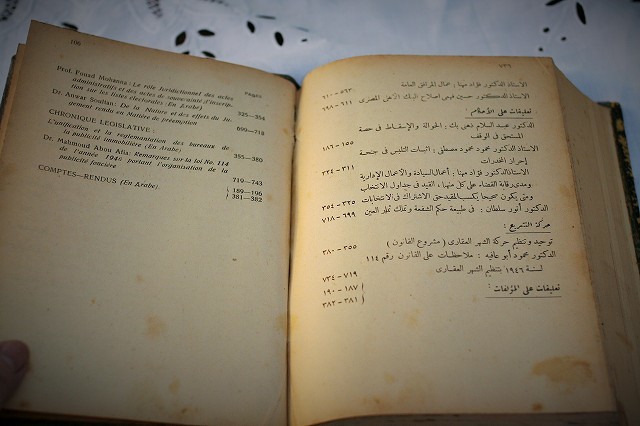 196
Pages
Prof. Fouad Mohanna : Le rôle Juridictionnel des actes
administratifs et des actes de souveraineté d'inscrip-
tion sur les fiches électorales (En Arabe) 325—354
Dr. Anwar Soultan : De la Nature et des effets du Ju-
gement rendu en Matière de préemption 699—718
CHRONIQUE LEGISLATIVE :
L'unification et la réglementation des bureaux de
la publicité immobilière (En Arabe) 355—380
Dr. Mahmoud Abou Afia : Remarques sur la loi No. 114
de l'année 1946 portant l'organisation de la
publicité foncière 719—743
COMPTES—RENDUS (En Arabe)
189—196
381—382
٧٣٦
الاستاذ الدكتور فؤاد مهنا : عمال المرافق العامة ٥٦٣ – ٦١٠
الاستاذ الدكتور حسين فهمى اصلاح البنك الأهلى المصرى ٦١١ – ٦٩٨
تعليقات على الأحكام :
الدكتور عبد السلام ذهنى بك : الحوالة والإسقاط فى حصة
المستحق فى الوقف
الدكتور محمود محمود مصطفى : اثبات التلبس فى جنحة
إحراز المخدرات ١٥٥ – ١٨٦
الاستاذ الدكتور فؤاد مهنا : أعمال السيادة والاعمال الإدارية ٣١١ – ٣٢٤
ومدى رقابة القضاء على كل منها ، القيد فى جداول الانتخاب
ومتى يكون صحيحا يكسب المقيد حق الاشتراك فى الانتخابات ٣٢٥ – ٣٥٤
الدكتور أنور سلطان : فى طبيعة حكم الشفعة وتملك ثمار العين ٦٩٩ – ٧١٨
حركة التشريع :
توحيد وتنظيم حركة الشهر العقارى ( مشروع القانون ) ٣٥٥ – ٣٨٠
الدكتور محمود أبو عافيه : ملاحظات على القانون رقم ١١٤
لسنة ١٩٤٦ بتنظيم الشهر العقارى ٧١٩ – ٧٣٤
تعليقات على المؤلفات :
١٨٧ – ١٩٠
٣٨١ – ٣٨٢